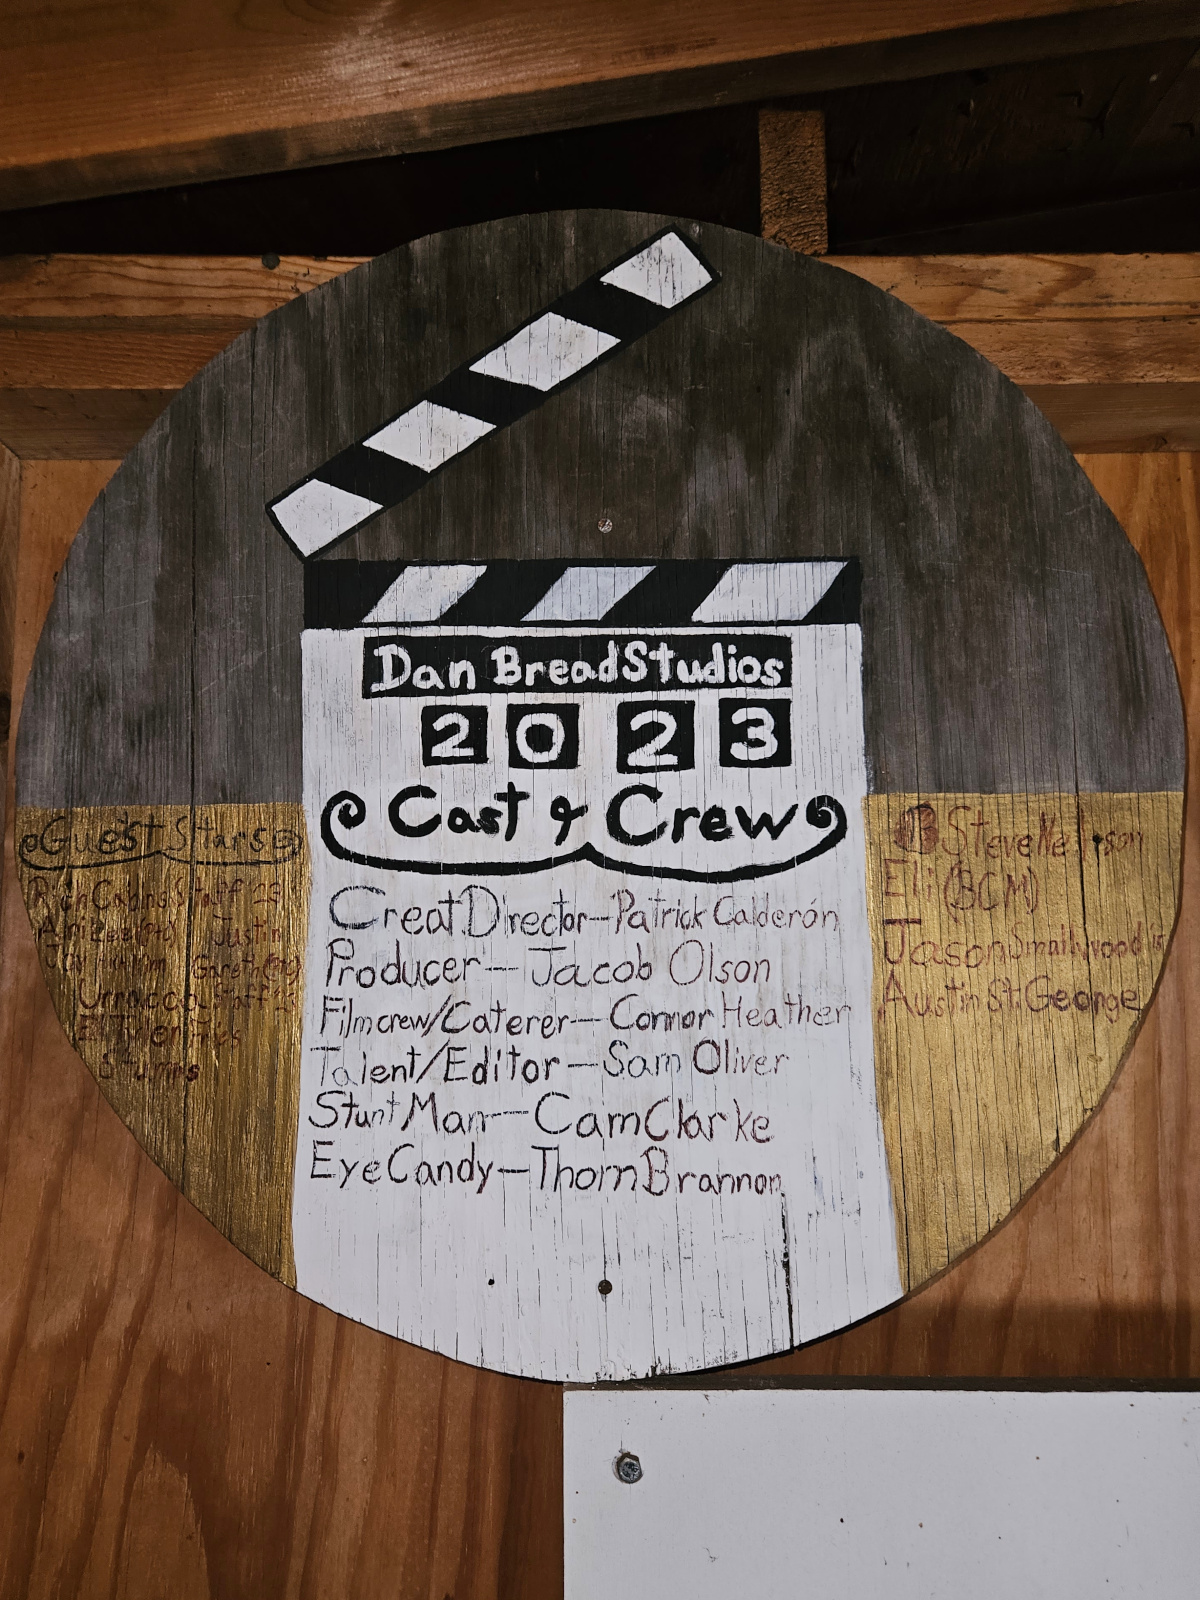 Dan Bread Studios
2023
Cast & Crew
Creat Director—Patrick Calderón
Producer—Jacob Olson
Filmcrew/Caterer—Connor Heather
Talent/Editor—Sam Oliver
Stunt Man—Cam Clarke
Eye Candy—Thorn Brannon
Guest Stars
Rich Cabins Staff
Justin
Gareth
Urraca Staff
Steve Nelson
Eli (BCM)
Jason Smallwood
Austin St. George